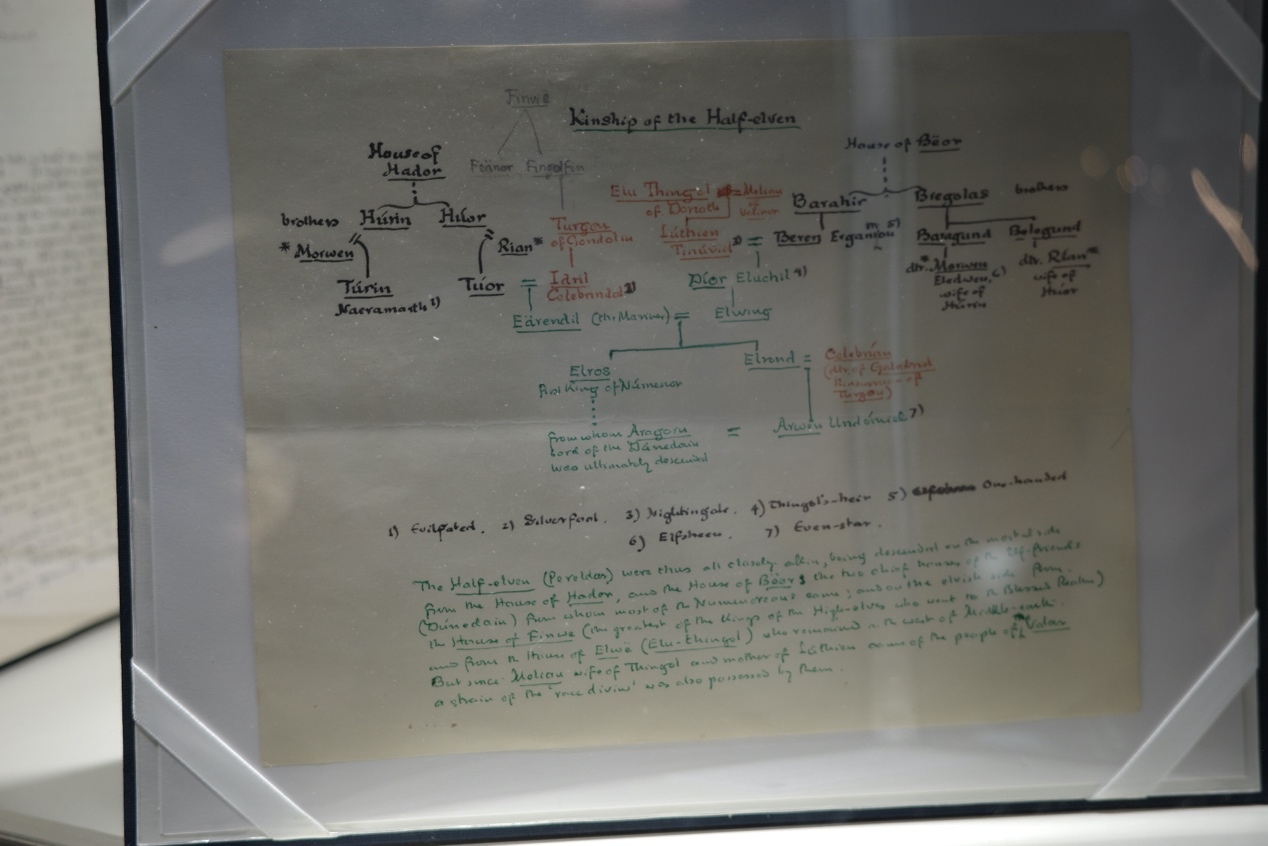 Finwë
Kinship of the Half-elven
House of
Hador
Fëanor Fingolfin
House of Bëor
brothers Húrin Húor
* Morwen
Rian*
Túrin
1)
Túor =
Turgon
of Gondolin
Idril
2)
Elu Thingol = Melian
of Doriath
Lúthien
Tinúviel 3) =
Barahir Bregolas brothers
Beren 5) Baragund Belegund
dtr. * Morwen
6)
wife of
Húrin
dtr. Rían*
wife of
Húor
Díor Eluchil 4)
Eärendil (the Mariner) = Elwing
Elros
of Númenor
Elrond = Celebrían
Turgon)
from whom Aragorn
Lord of the Dúnedain
was ultimately descended
= Arwen Undómiel 7)
1) Evilfated. 2) Silverfoot. 3) Nightingale. 4) Thingol's-heir 5) One-handed
6) Elfsheen. 7) Even-star.
The Half-elven (Pereldar) were thus all closely akin, being descended on the mortal side
from the House of Hador, and the House of Bëor, the two chief houses of the Elf-friends
(Dúnedain) from whom most of the Númenóreans came; and on the elvish side from
the House of Finwë (the greatest of the kings of the High-elves who went to the Blessed Realm)
and from the House of Elwë (Elu-Thingol) who remained in the west of Middle-earth.
But since Melian wife of Thingol and mother of Lúthien came of the people of the Valar
a strain of the 'race divine' was also possessed by them.